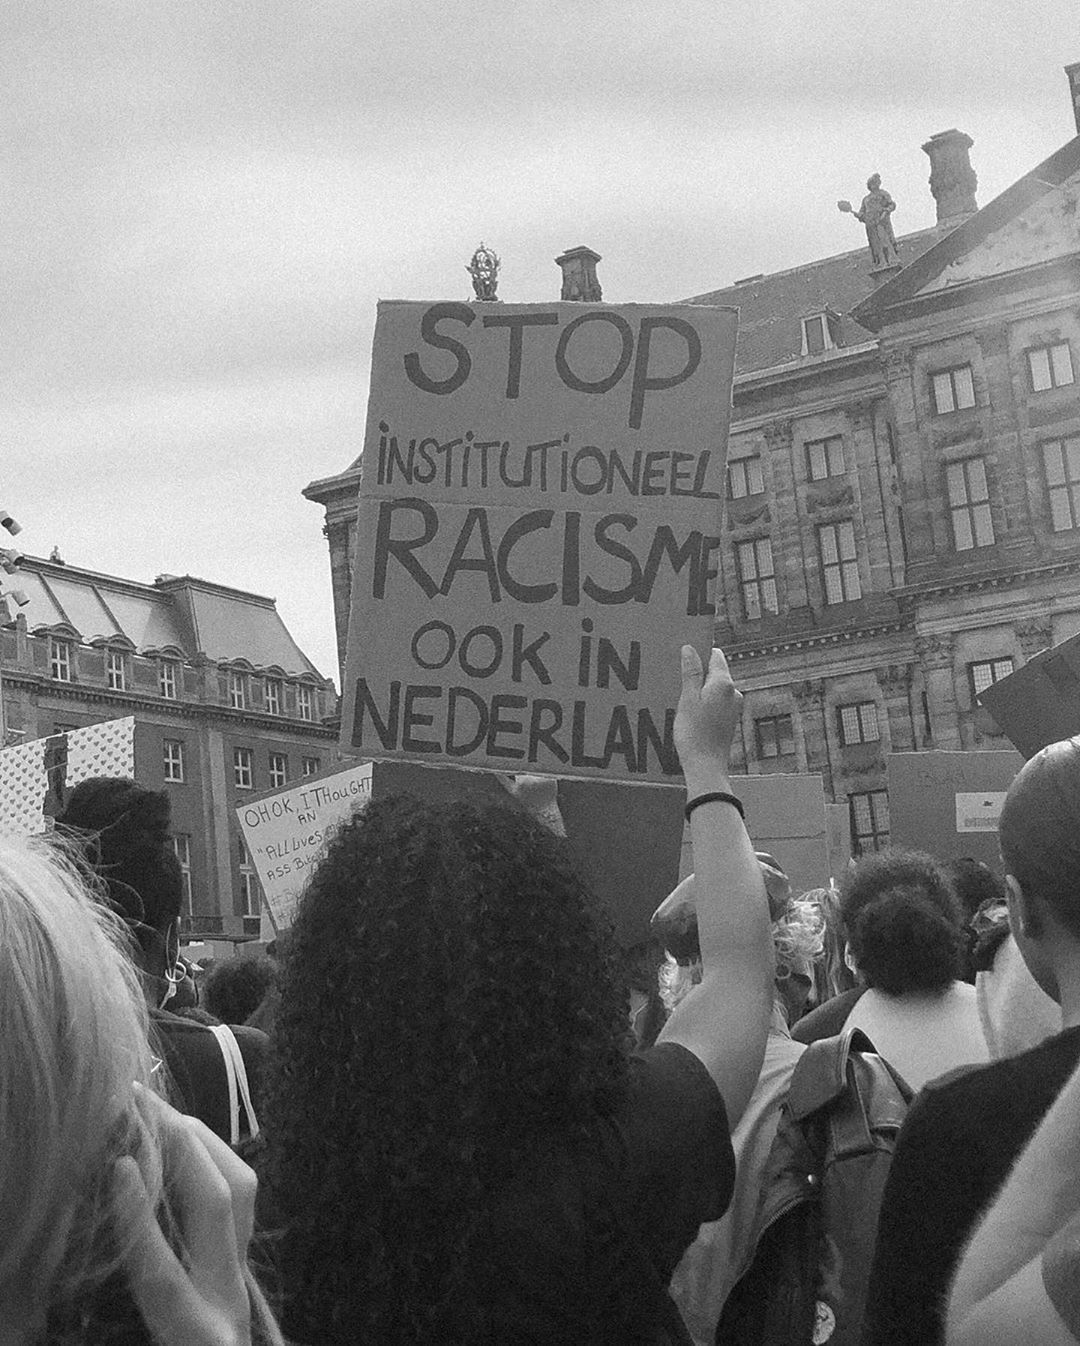 STOP
INSTITUTIONEEL
RACISME
OOK IN
NEDERLAN
OH OK, I THOUGHT
AN
"ALL LIVES
ASS